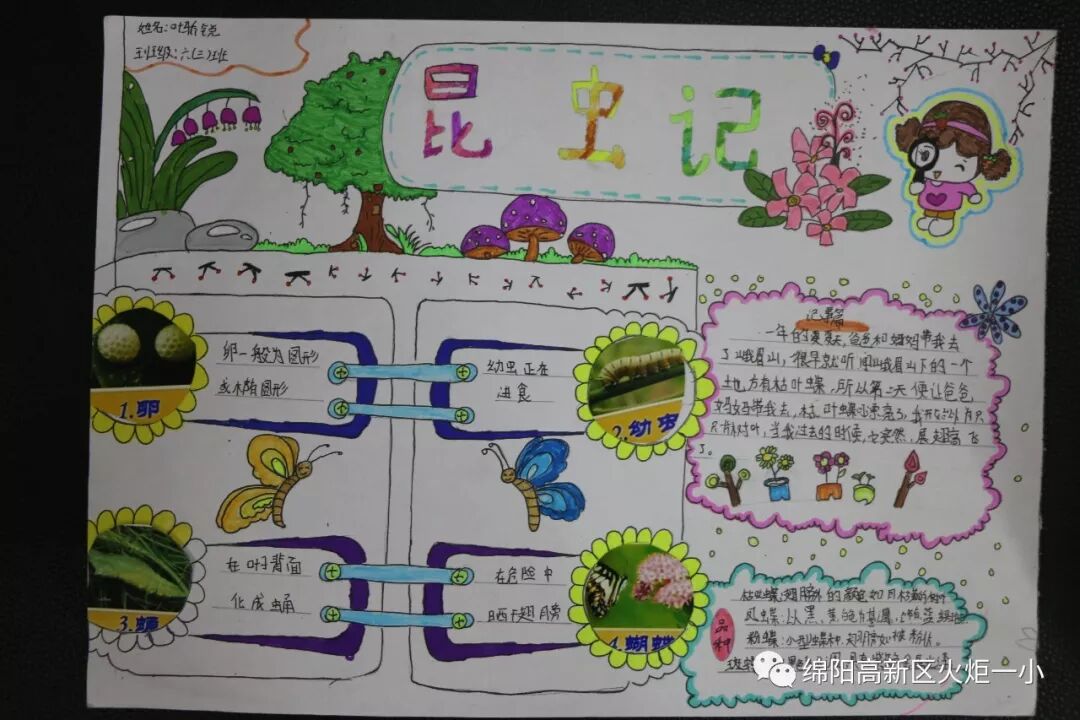 姓名:叶
班级:六(三)班
昆虫记
卵一般为圆形
或椭圆形
1.卵
幼虫正在
进食
2.幼虫
在叶子背面
化成蛹
3.蛹
在危险中
晒干翅膀
4.蝴蝶
记事篇
一年的夏天,爸爸和妈妈带我去
了峨眉山,很早就听闻峨眉山下的一个
地方有枯叶蝶,所以第二天便让爸爸
妈妈带我去,枯叶蝶漂亮
叶,当我过去的时候,它突然,展翅高飞
了。
品种
枯叶蝶:翅膀的颜色如同枯
凤蝶:以黑、黄
粉蝶:小型蝶种,翅膀如被粉
斑
绵阳高新区火炬一小